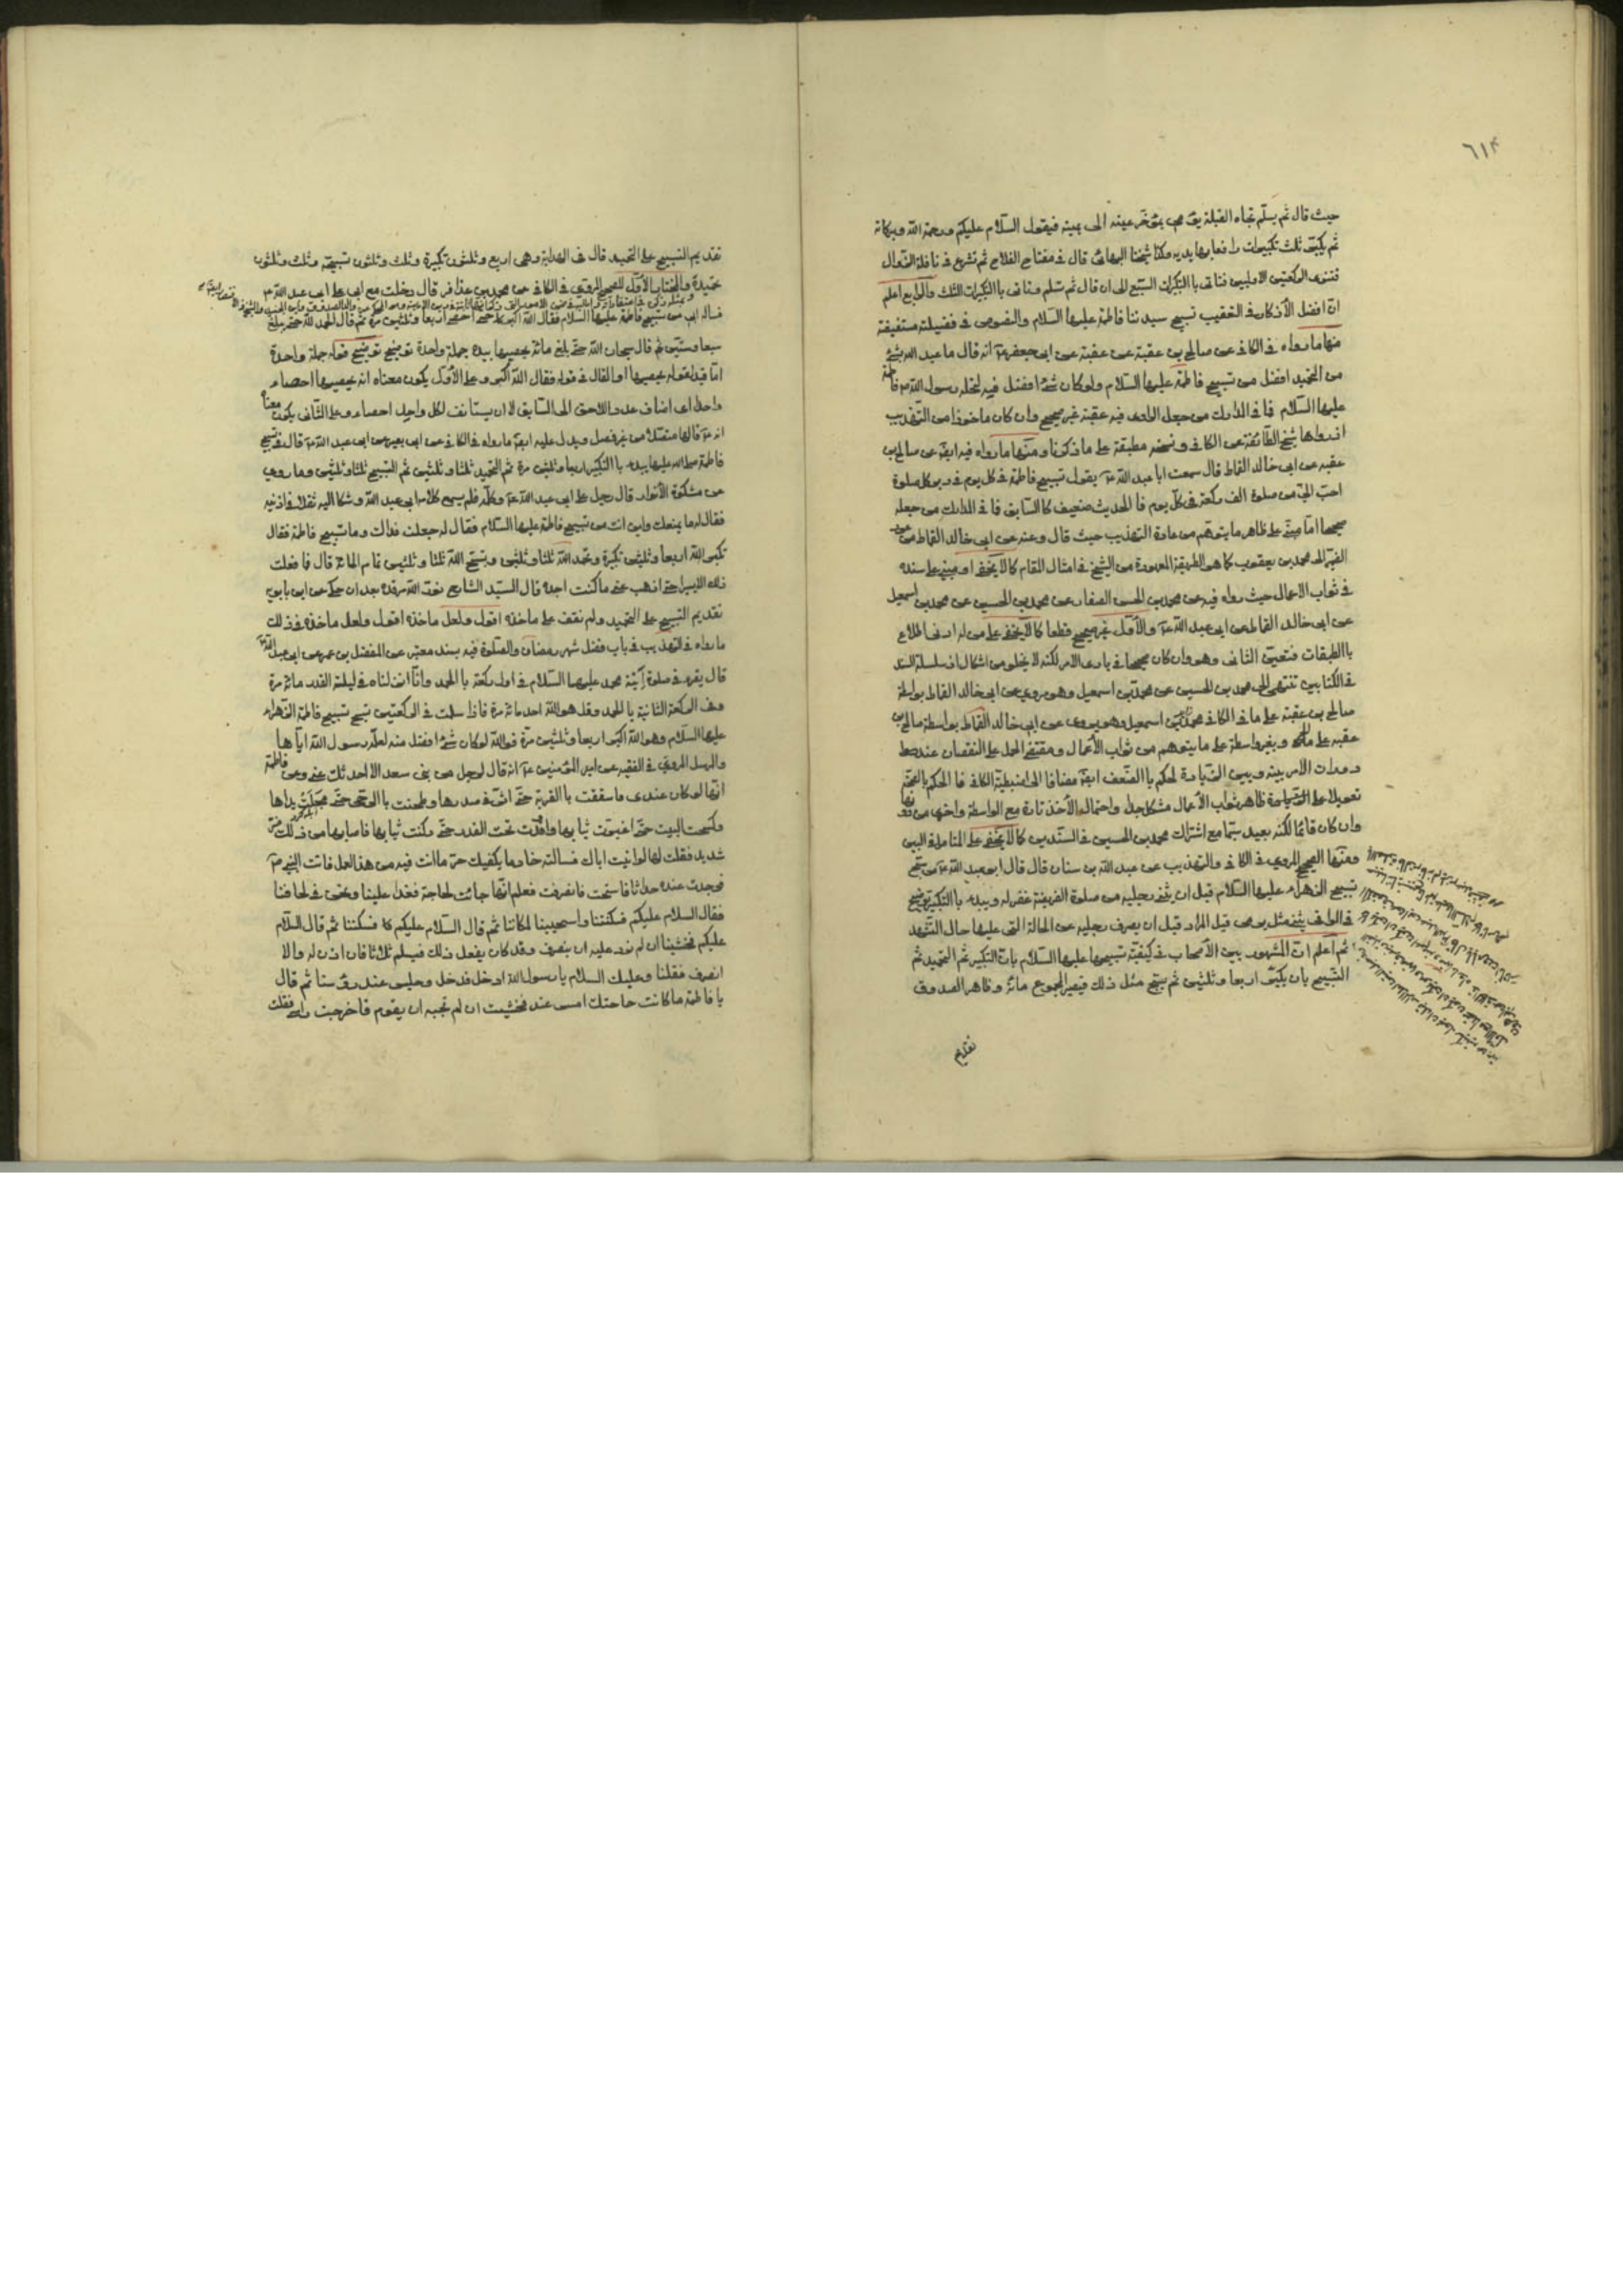 ٦١٤
حيث قال ثم يسلّم تجاه القبلة يؤمى بمؤخر عينه الى يمينه فيقول السّلام عليكم ورحمة الله وبركاته
ثم يكبّر ثلث تكبيرات رافعا بها يديه وكذا شيخنا البهائى قال فى مفتاح الفلاح ثم تشرع فى نافلة الزوال
فتنوى الركعتين الاوليين فتاتى باالتكبيرات السّبع الى ان قال ثم تسلّم وتاتى باالتكبيرات الثلث والرابع اعلم
انّ افضل الأذكار فى التعقيب تسبيح سيدتنا فاطمة عليها السلام والنصوص فى فضيلته مستفيضة
منها ما رواه فى الكافى عن صالح بن عقبة عن عقبة عن ابى جعفر ع انه قال ما عبد الله بشئ
من التحميد افضل من تسبيح فاطمة عليها السّلام ولو كان شئ افضل منه لنحله رسول الله ص فاطمة
عليها السّلام فما فى المدارك من جعل الراوى فيه عقبة غير صحيح وان كان ماخوذا من التهذيب
اذ رواها شيخ الطائفة عن الكافى ونسخه مطبقة على ما ذكرنا ومنها ما رواه فيه ايضا عن صالح بن
عقبه عن ابى خالد القماط قال سمعت ابا عبد الله ع يقول تسبيح فاطمة فى كل يوم فى دبر كل صلوة
احبّ الىّ من صلوة الف ركعة فى كلّ يوم فا الحديث ضعيف كا السّابق فما فى المدارك من جعله
صحيحا امّا مبنىّ على ظاهر ما يتوهّم من عادة التهذيب حيث قال وعنه عن ابى خالد القماط من عود
الضمير الى محمد بن يعقوب كما هو الطريقة المعهودة من الشيخ فى امثال المقام كما لا يخفى او مبنى على سنده
فى ثواب الاعمال حيث رواه فيه عن محمد بن الحسن الصفار عن محمد بن الحسين عن محمد بن اسمعيل
عن ابى خالد القماط عن ابى عبد الله ع والأوّل غير صحيح قطعا كما لا يخفى على من له ادنى اطلاع
باالطبقات فتعيّن الثانى وهو وان كان صحيحا فى بادى الامر لكنه لا يخلو من اشكال اذ سلسلة السند
فى الكتابين تنتهى الى محمد بن الحسين عن محمد بن اسمعيل وهو مروى عن ابى خالد القماط بواسطة
صالح بن عقبة على ما فى الكافى محمد بن اسمعيل وهو يروى عن ابى خالد القماط بواسطة صالح بن
عقبه على ما وبغير واسطة على ما يتوهم من ثواب الأعمال ومقتضى الحمل على النقصان عند
دوران الامر بينه وبين الزيادة لحكم باالضعف ايضا مضافا الى اضبطية الكافى فا الحكم بالصحّة
تعويلا على ظاهر ثواب الأعمال مشكل جدا واحتمال الأخذ تارة مع الواسطة واخرى من دونها
وان كان قائما لكنه بعيد سيّما مع اشتراك محمد بن الحسين فى السّندين كما لا يخفى على المتامل
ومنها الصحيح المروى فى الكافى والتهذيب عن عبد الله بن سنان قال قال ابو عبد الله ع من سبّح
تسبيح الزهراء عليها السّلام قبل ان يثنى رجليه من صلوة الفريضة غفر له ويبدء باالتكبير توضيح
فى الوافى يثنى مثل يرمى قيل المراد قبل ان يصرف رجليه عن الحالة التى عليها حال التشهد
ثم اعلم انّ المشهور بين الأصحاب فى كيفيّة تسبيحها عليها السّلام بانّ التكبير ثم التحميد ثم
التسبيح بان يكبّر اربعا وثلثين ثم يسبّح مثل ذلك فيصير المجموع مائة وظاهر الصدوق
تقديم
تقديم التسبيح على التحميد قال فى الهداية وهى اربع وثلثون تكبيرة وثلث وثلثون تسبيحة وثلث وثلثون
تحميدة والمختار الأوّل للصحيح المروى فى الكافى عن محمد بن عذافر قال دخلت مع ابى على ابى عبد الله ع
فساله ابى عن تسبيح فاطمة عليها السلام فقال الله اكبر حتى احصى اربعا وثلثين مرّة ثم قال الحمد لله حتى بلغ
سبعا وستّين ثم قال سبحان الله حتى بلغ مائة يحصيها بيده جملة واحدة توضيح قوله جملة واحدة
امّا قيد لقوله يحصيها او لقال فى قوله فقال الله اكبر وعلى الأوّل يكون معناه انه يحصيها احصاء
واحدا اى اضاف عدد اللاحق الى السّابق لا ان يستانف لكل واحد احصاء وعلى الثّانى يكون معناه
انه ع قالها متصلا من غير فصل ويدل عليه ايضا ما رواه فى الكافى عن ابى بصير عن ابى عبد الله ع قال فى تسبيح
فاطمة صلى الله عليها يبدء باالتكبير اربعا وثلثين مرة ثم التحميد ثلثا وثلثين ثم التسبيح ثلثا وثلثين وما روى
عن مشكوة الأنوار قال دخل رجل على ابى عبد الله ع وكلّمه فلم يسمع كلام ابى عبد الله وشكا اليه ثقلا فى اذنيه
فقال له ما يمنعك واين انت من تسبيح فاطمة عليها السّلام فقال له جعلت فداك وما تسبيح فاطمة فقال
تكبّر الله اربعا وثلثين تكبيرة وتحمد الله ثلثا وثلثين وتسبّح الله ثلثا وثلثين تمام المائة قال فما فعلت
ذلك الا يسيرا حتى اذهب عنى ما كنت اجده قال السيّد الشارح نوّر الله مرقده بعد ان حكى عن ابن بابويه
تقديم التسبيح على التحميد ولم نقف على ماخذه اقول ولعل ماخذه فى ذلك
ما رواه فى التهذيب فى باب فضل شهر رمضان والصّلوة فيه بسند معتبر عن المفضل بن عمر عن ابى عبد الله ع
قال يقرء فى صلوة ابنة محمد عليهما السّلام فى اول ركعة باالحمد وانّا انزلناه فى ليلة القدر مائة مرة
وفى الركعة الثانية باالحمد وقل هو الله احد مائة مرة فاذا سلمت فى الركعتين سبّح تسبيح فاطمة الزهراء
عليها السلام وهو الله اكبر اربعا وثلثين مرّة فوالله لو كان شئ افضل منه لعلّمه رسول الله ايّاها
والمرسل المروى فى الفقيه عن امير المؤمنين ع انه قال لرجل من بنى سعد الا احدثك عنى وعن فاطمة
انّها لو كان عندى فاستقت باالقربة حتّى اثّر فى صدرها وطحنت باالرحى حتّى مجلت يداها
وكسحت البيت حتّى اغبرّت ثيابها واوقدت تحت القدر حتّى دكنت ثيابها فاصابها من ذلك ضرّ
شديد فقلت لها لو اتيت اباك فسالته خادما يكفيك حرّ ما انت فيه من هذا العمل فاتت النبى ص
فوجدت عنده حدّاثا فاستحت فانصرفت فعلم انّها جائت لحاجة فغدا علينا ونحن فى لحافنا
فقال السلام عليكم فسكتنا واستحيينا لمكاننا ثم قال السّلام عليكم كا فسكتنا ثم قال السّلام
عليكم فخشينا ان لم نرد عليه ان ينصرف وقد كان يفعل ذلك فيسلم ثلاثا فان اذن له والا
انصرف فقلنا وعليك السلام يا رسول الله ادخل فدخل وجلس عند رؤسنا ثم قال
يا فاطمة ما كانت حاجتك امس عند فخشيت ان لم تجبه ان يقوم فاخرجت راسى فقلت